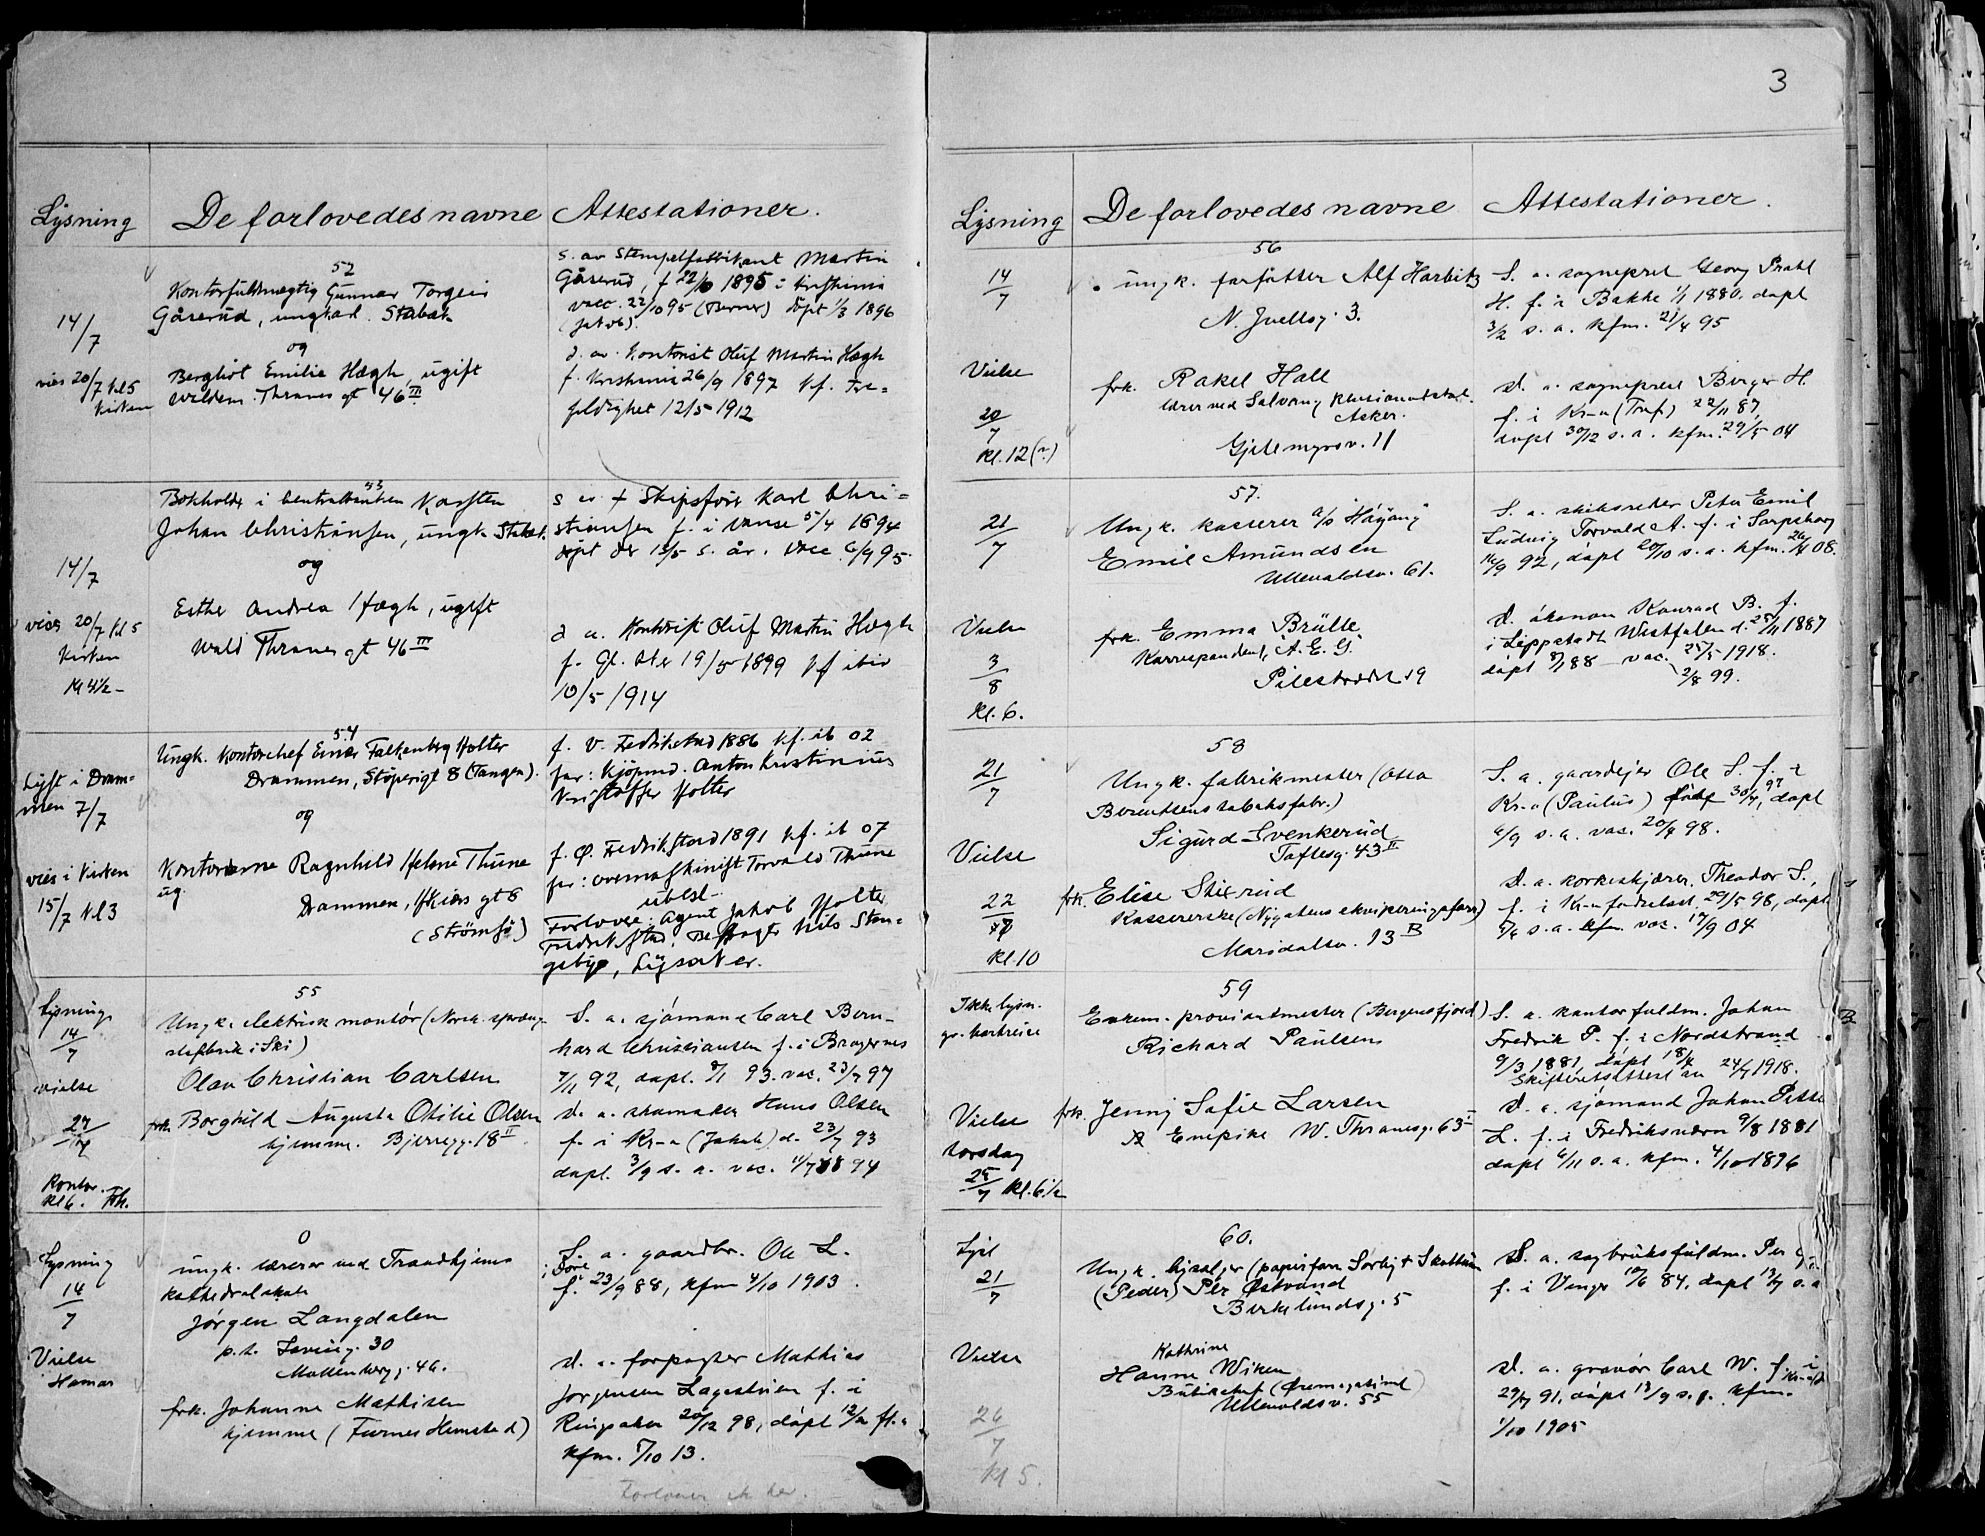 3
Lysning
De forlovedes navne
Attestationer.
52
14/7
vies 20/7 kl 5
Kirken
Kontorfuldmægtig Gunnar Torgeir
Gåserud, ungkarl. Stabæk
og
Bergliot Emilie Hægh, ugift
Waldem. Thranes gt 46 III
s. av Stempelfabrikant Martin
Gåserud, f 22/9 1895 i Kristiania
vacc. 22/10 95 (Berner) döpt 1/3 1896
(Jakob).
d. av. Kontorist Oluf Martin Hægh
f. Kristiania 26/9 1897 kf. Tre-
foldighet 12/5 1912
53
14/7
vies 20/7 kl 5
Kirken
Kl 4 1/2 -
Bokholder i Centralbanken Karsten
Johan Christiansen, ungk. Stabæk.
og
Esther Andrea Hægh, ugift
Wald Thranes gt 46 III
s av + Skipsförer Karl Chri=
stiansen f. i Vanse 5/4 1894
döpt der 13/5 s. år. Vacc 6/9 95.
d a. Kontorist Oluf Martin Hægh
f. Gl. Aker 19/5 1899 kf ibid
10/5 1914
54
Lyst i Dram=
men 7/7
vies i Kirken
15/7 kl 3
Ungk. Kontorchef Einar Falkenberg Holter
Drammen, Stöperigt 8 (Tangen).
og
Kontordame Ragnhild Helene Thune
ug.
Drammen, H. Kiærs gt 8
(Strömsö)
f. V. Fredrikstad 1886 kf. ib 02
far: Kjöpmd. Anton Kristinius
Kristoffer Holter
f. Ø. Fredrikstad 1891 kf. ib 07
far: overmaskinist Torvald Thune
ubesl.
Forlovere: Agent Jakob Holter
Fredrikstad. Nils Stan-
gebye, Lysaker.
55
Lysning.
14/7
vielse
27/7
Kontor.
kl 6.
Ungk. elektrisk montör (Norsk. spræng-
stofbrik i Ski)
Olav Christian Carlsen
frk. Borghild Augusta Otilie Olsen
hjemme. Bjerregg. 18 II
S. a. sjömand Carl Bern-
hard Christiansen f. i Bragernes
7/11 92, döpt. 8/1 93. vac. 23/7 97
d. a. skomaker Hans Olsen
f. i Kr-a (Jakob) d. 23/7 93
döpt. 3/9 s. a. vac. 11/7 94
0
Lysning
14/7
Vielse
Hamar
ungk. lærer ved Trondhjems
kathedralskole
Jørgen Langdalen
p.t. 30
Møllenbergg. 46.
frk. Johanne Mathisen
hjemme (Furnes Hemstad)
S. a. gaardbr. Ole L.
f. 23/9 88, kfm 4/10 1903
d. a. forpagter Mathias
Jørgensen Lagestuen f. i
Ringsaker 20/12 98, döpt 12/2 fl.a
kfm. 5/10 13.
Lysning
De forlovedes navne
Attestationer.
56
14/7
Vielse
20/7
kl. 12
ungk. forfatter Alf Harbitz
N. Juelsg. 3.
frk. Rakel Hall
lærer ved Solvang
Asker.
Gjetemyrsv. 11
S. a. sogneprest Georg Prahl
H. f. i Bakke 1/1 1880. döpt
3/2 s. a. kfm. 21/4 95
d. a. sogneprest Birger H.
f. i Kr-a (Tref) 22/11 87,
döpt 30/12 s. a. kfm. 29/5 04
57.
21/7
Vielse
3/8
kl. 6.
Ungk. kasserer a/s Höyang
Emil Amundsen
Ullevaldsv. 61.
frk. Emma Brülle
Korrespondent, A. E. G.
Pilestrædet 19
S. a. skibsreder Peter Emil
Ludvig Torvald A. f. i Sarpsborg
16/9 92, döpt 20/10 s. a. kfm. 26/4 08.
d. økonom Konrad B. f.
i Lippstadt Westfalen d. 25/11 1887
döpt 8/1 88 - vac. 25/5 1918.
2/8 99.
58
21/7
Vielse
22/7
kl. 10
Ungk. fabrikmester (Asea
Berentsens tobaksfabr.)
Sigurd Svenkerud
Toftesg. 43 II
frk. Elise Skjerud
Kassererske (Nygatens ekviperingsforr)
Maridalsv. 13 B
S. a. gaardejer Ole S. f. i
Kr-a (Paulus) 30/7 97, döpt
6/9 s. a. vac. 20/9 98.
d. a. korkeskjærer. Theodor S.,
f. i Kr-a fødselsst. 29/5 98, döpt
s. a. vac. 17/9 04
59
Ikke lysn.
gr. bortreise
Vielse
torsdag
25/7 kl. 6 1/2
Enkem. proviantmester (Bergensfjord)
Richard Paulsen
frk. Jenny Sofie Larsen
Enepike W. Thranesg. 65 I
S. a. kontorfuldm. Johan
Fredrik P. f. i Nordstrand
9/3 1881, döpt 18/4
Skifteretsattest av 24/7 1918.
d. a. sjömand Johan Petter
L. f. i Fredriksværn 9/8 1881
döpt 6/11 s. a. kfm. 4/10 1896
60.
Lyst
21/7
Vielse
26/7
kl 5.
Ungk. bysælger (papirforr Sørby + Skottun
(Peder) Per Østvand
Birkelundsg. 5
Kathrine
Hanne Wiken
Butikchef (Øremagasinet)
Ullevoldsv. 55
S. a. sagbruksfuldm. Per
f. i Vinger 10/6 84. döpt 13/7 s. a
d. a. gravör Carl W. f. i
29/7 91, döpt 13/9 s. a. kfm.
1/10 1905